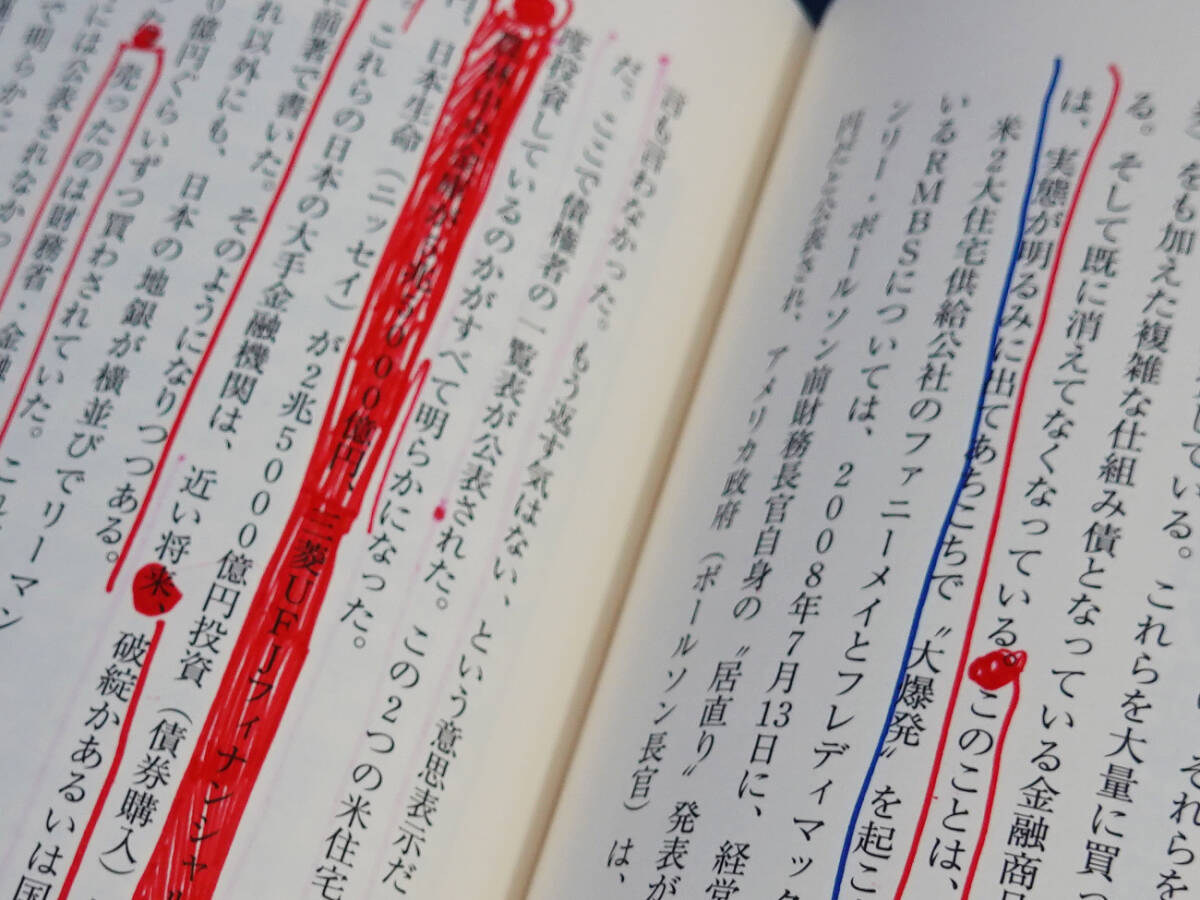 それらを
している。これらを大量に買っ
をも加えた複雑な仕組み債となっている金融商品
る。そして既に消えてなくなっている。このことは、
は、実態が明るみに出てあちこちで〝大爆発〟を起こ
米2大住宅供給公社のファニーメイとフレディマック
いるRMBSについては、2008年7月13日に、経営
ンリー・ポールソン前財務長官自身の〝居直り〟発表が
と公表され、アメリカ政府（ポールソン長官）は、
わなかった。もう返す気はない、という意思表示だ
だ。ここで債権者の一覧表が公表された。この2つの米住宅
度投資しているのかがすべて明らかになった。
農林中央金庫が5兆5000億円、三菱UFJフィナンシャル
円、日本生命（ニッセイ）が2兆5000億円投資（債券購入）
。これらの日本の大手金融機関は、近い将来、破綻かあるいは国
に前著で書いた。そのようになりつつある。
れ以外にも、日本の地銀が横並びでリーマン
0億円ぐらいずつ買わされていた。これ
った 売ったのは財務省・金融
には公表されなかっ
で明らかに